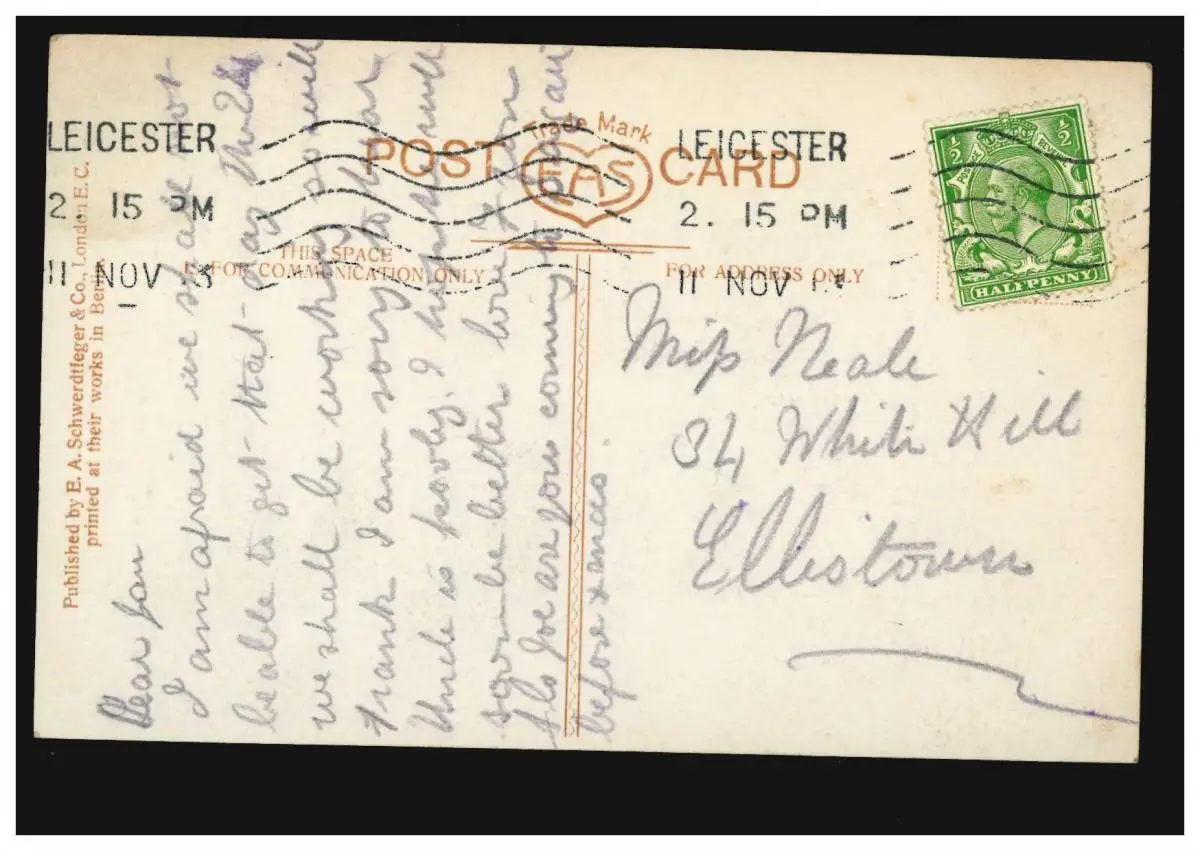 LEICESTER
2. 15 PM
11 NOV 13
POST CARD
Trade Mark
EAS
LEICESTER
2. 15 PM
11 NOV 1
THIS SPACE
IS FOR COMMUNICATION ONLY
FOR ADDRESS ONLY
POSTAGE
½ ½
HALFPENNY
Published by E. A. Schwerdtfeger & Co., London E.C.
printed at their works in Berlin.
Dear
I am afraid we shall not
be able to get that day
we shall be working so will
Frank I am sorry to hear
Uncle is poorly. I hope he will
soon be better love
Joe are you coming to
before xmas
Miss Neale
34 White Hill
Ellistown